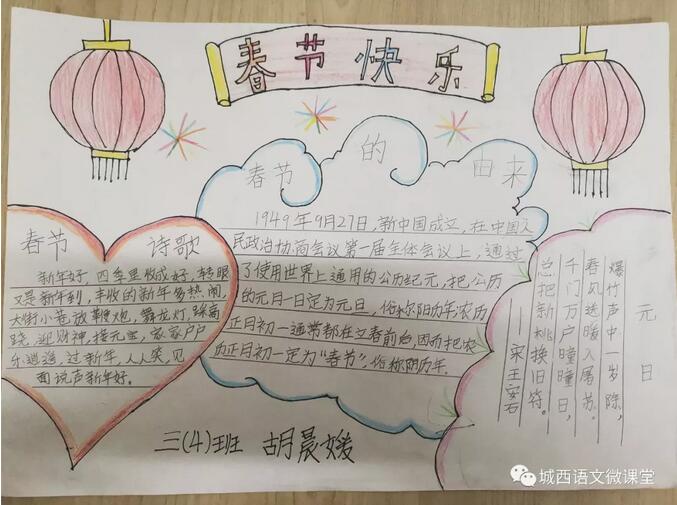 春节快乐
春节的由来
1949年9月27日,新中国成立,在中国人
民政治协商会议第一届全体会议上,通过
了使用世界上通用的公历纪元,把公历
的元月一日定为元旦,俗称阳历年;农历
正月初一通常都在立春前后,因而把农
历正月初一定为“春节”,俗称阴历年。
春节诗歌
新年好,四季里收成好,转眼
又是新年到,丰收的新年多热闹,
大街小巷放鞭炮,舞龙灯踩高
跷,迎财神,接元宝,家家户户
乐逍遥,过新年,人人笑,见
面说声新年好。
元日
爆竹声中一岁除,
春风送暖入屠苏。
千门万户曈曈日,
总把新桃换旧符。
——宋王安石
三(4)班 胡晨媛
城西语文微课堂